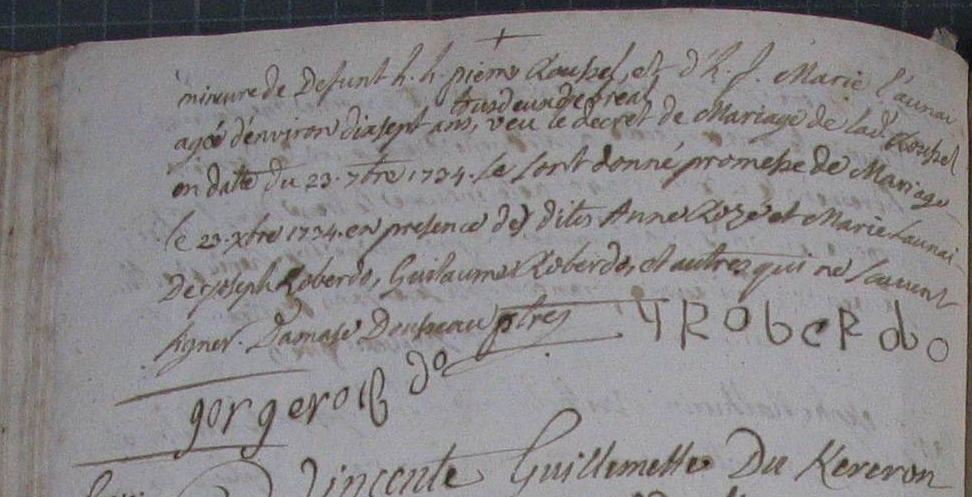 mineure de Defunt h. h. pierre Roussel, et d'h. f. Marie l'aunai
agée d'environ dixsept ans, tous deux de Preat veu le decret de Mariage de lad. Roussel
en datte du 23. 7bre 1734. se sont donné promesse de Mariage
le 23. xbre 1734. en presence des dites Anne Rozé et Marie Launai
De joseph Roberdo, Guilaume Roberdo, et autres qui ne scavent
signer. Damase ptres
Y Roberdo
gorge ro do
Vincente Guillemette Du Kereron